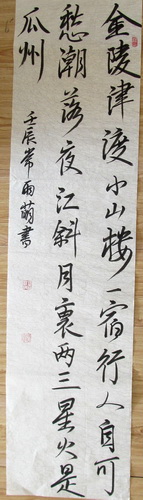 金陵津渡小山楼一宿行人自可
愁潮落夜江斜月裏两三星火是
瓜州
壬辰常雨萌書